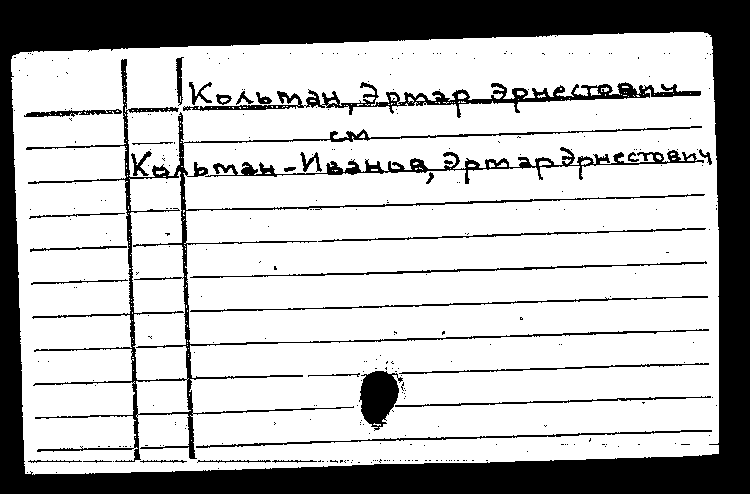 Кольман, Эртар Эрнестович
см
Кольман-Иванов, Эртар Эрнестович